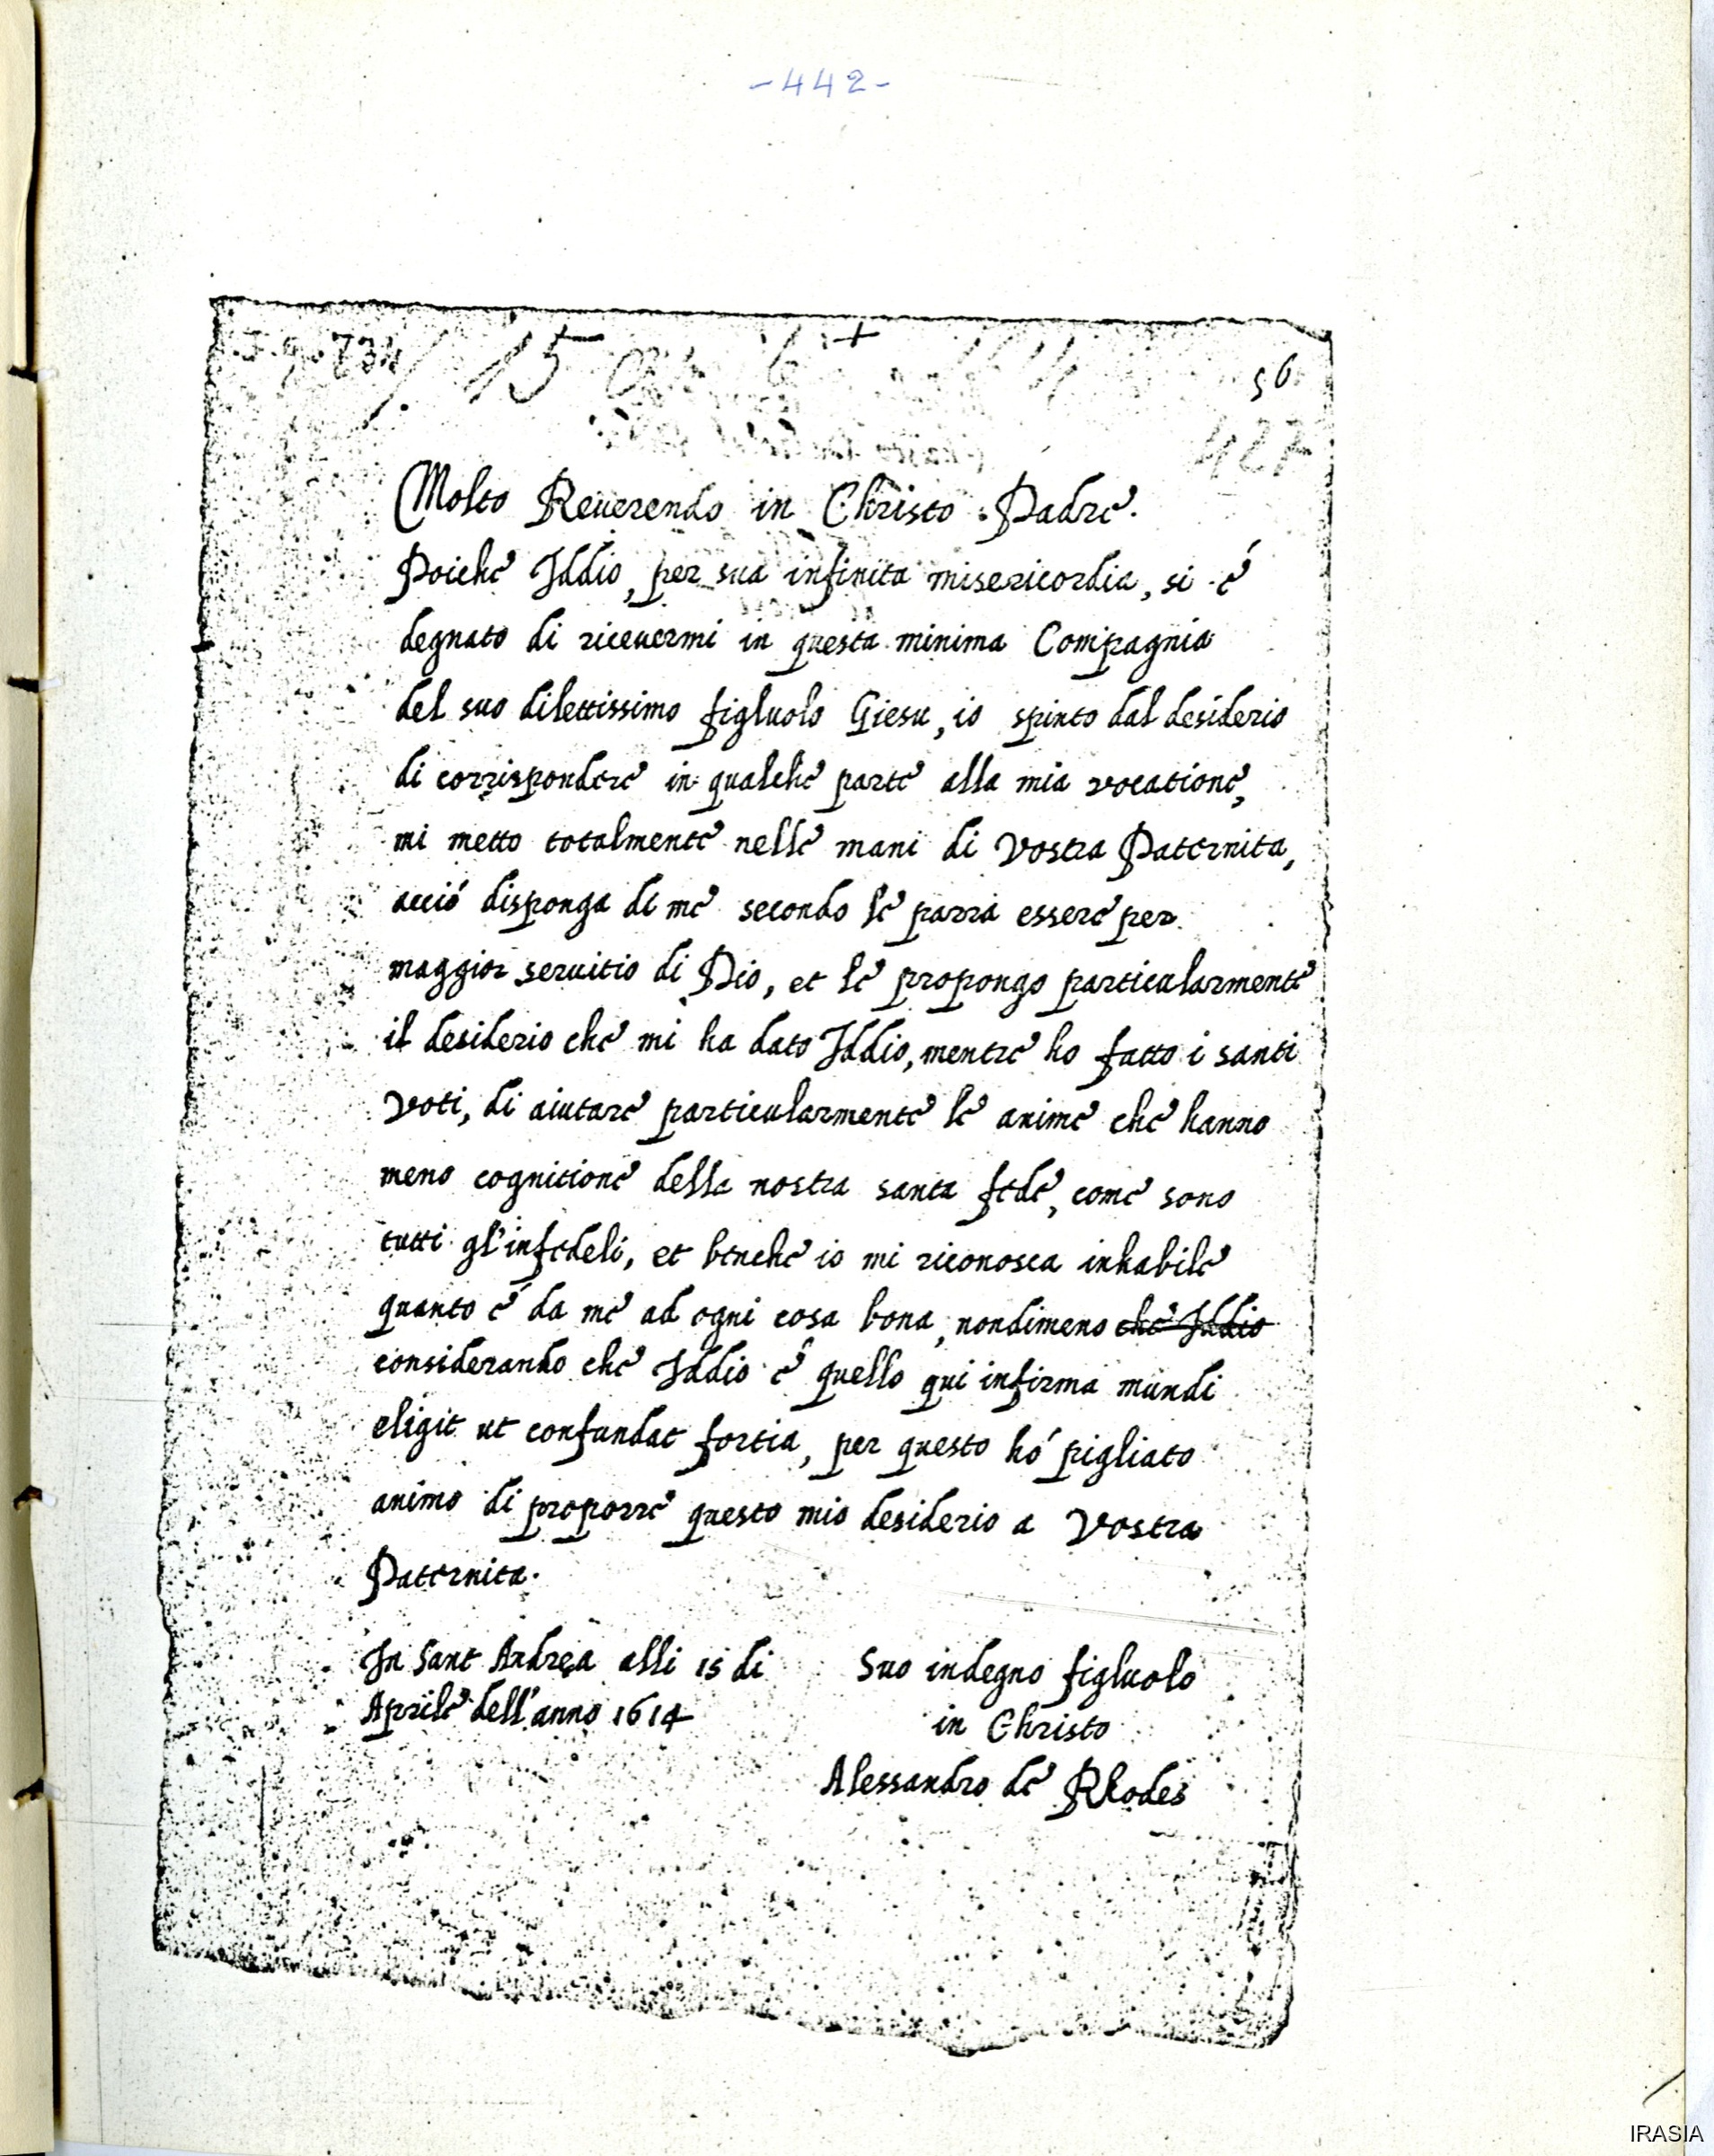 -442-
+
734
15
56
427
Molto Reuerendo in Christo Padre.
Poiche Iddio, per sua infinita misericordia, si é
degnato di riceuermi in questa minima Compagnia
del suo dilettissimo figluolo Giesu, io spinto dal desiderio
di corrispondere in qualche parte alla mia vocatione,
mi metto totalmente nelle mani di Vostra Paternita,
acció disponga di me secondo le parra essere per
maggior seruitio di Dio, et le propongo particularmente
il desiderio che mi ha dato Iddio, mentre ho fatto i santi
voti, di aiutare particularmente le anime che hanno
meno cognitione della nostra santa fede, come sono
tutti gl'infedeli, et benche io mi riconosca inhabile
quanto é da me ad ogni cosa bona, nondimeno che Iddio
considerando che Iddio é quello qui infirma mundi
eligit ut confundat fortia, per questo hó pigliato
animo di proporre questo mio desiderio a Vostra
Paternita.
In Sant Andrea alli 15 di
Aprile dell'anno 1614
Suo indegno figluolo
in Christo
Alessandro de Rhodes
IRASIA